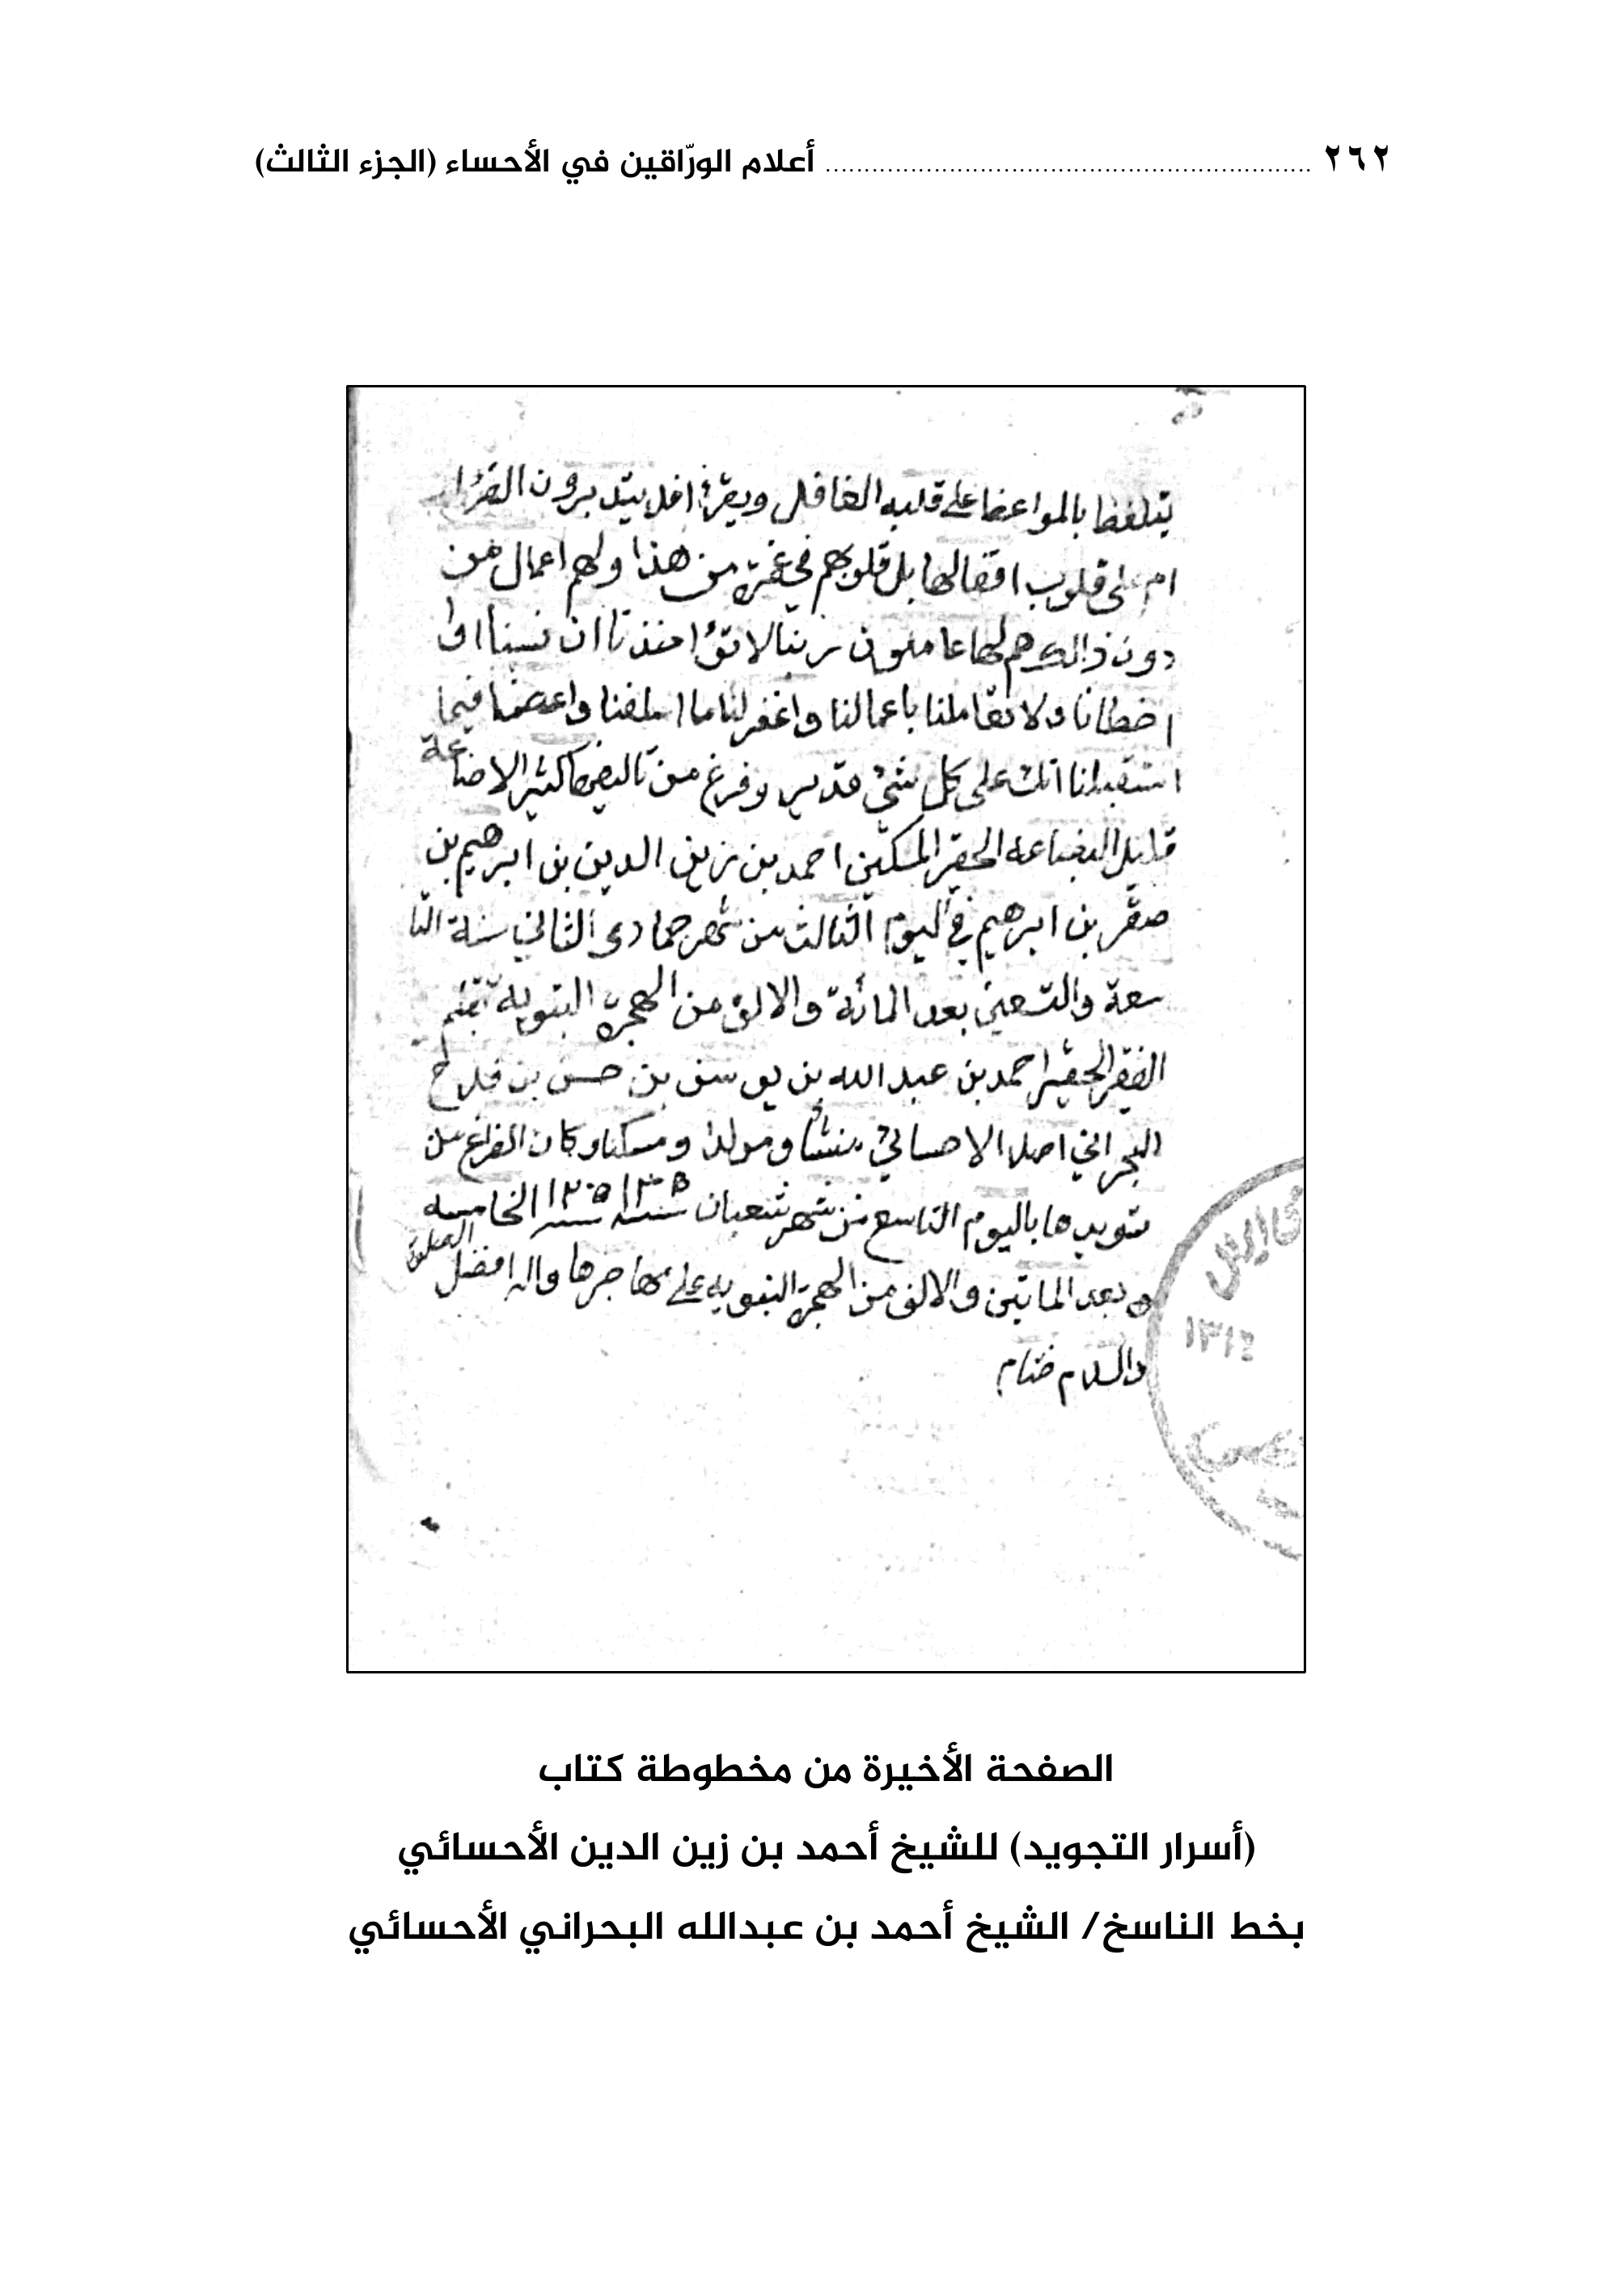 ٢٦٢ ........................................ أعلام الورّاقين في الأحساء (الجزء الثالث)
يتلفظ بالمواعظ على قلبه الغافل ويقرأ افلا يتدبرون القرا
ام على قلوب اقفالها بل قلوبهم في غمرة من هذا ولهم اعمال من
دون ذالك هم لها عاملون ربنا لا تؤاخذنا ان نسينا او
اخطانا ولا تقاملنا باعمالنا واغفر لنا ما اسلفنا واعصمنا فيما
استقبلنا انك على كل شئ قدير وفرغ من تاليفها كثير الاضاعة
قليل البضاعه الحقير المسكين احمد بن زين الدين بن ابرهيم بن
صقر بن ابرهيم في اليوم الثالث من شهر جمادى الثاني سنة التا
سعة والتسعين بعد المائة والالف من الهجرة النبوية بقلم
الفقير الحقير احمد بن عبد الله بن يوسف بن حسن بن فلاح
البحراني اصلا الاحسائي منشأ ومولدا ومسكنا وكان الفراغ من
تسويدها باليوم التاسع من شهر شعبان سنة ١٢٠٥ ١٢٠٥ الخامسه
بعد الماتين والالف من الهجرة النبويه على مهاجرها واله افضل الصلوة
والسلام ختام
١٣١٤
الصفحة الأخيرة من مخطوطة كتاب
(أسرار التجويد) للشيخ أحمد بن زين الدين الأحسائي
بخط الناسخ/ الشيخ أحمد بن عبدالله البحراني الأحسائي